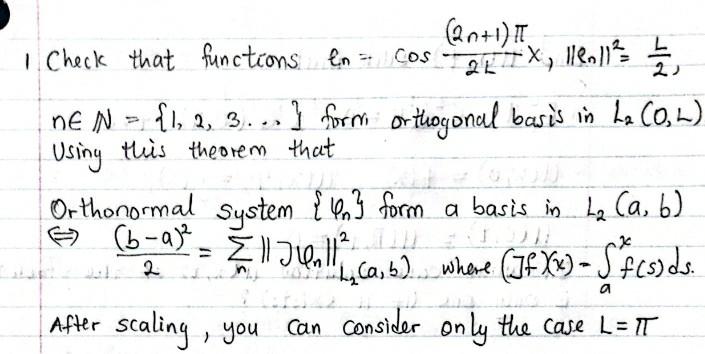 1 Check that functions en = cos (2n+1)π/2L x, ||en||² = L/2,
n∈ ℕ = {1, 2, 3...} form orthogonal basis in L₂(0,L)
Using this theorem that
Orthonormal system {φn} form a basis in L₂(a, b)
⇔ (b-a)²/2 = Σn ||Jφn||²L₂(a,b) where (Jf)(x) = ∫ₐˣ f(s)ds.
After scaling, you can consider only the case L=π